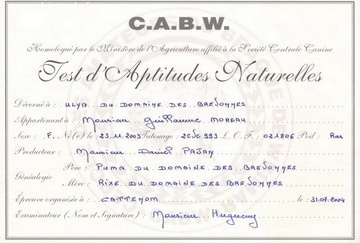 C.A.B.W.
Homologué par le Ministère de l'Agriculture affilié à la Société Centrale Canine
Test d'Aptitudes Naturelles
Décerné à : ULYA DU DOMAINE DES BREVONNES
Appartenant à : Monsieur Guillaume MOREAU
Sexe : F. Né(e) le : 23.11.2003 Tatouage : 2CVG 993 L.O.F. : 021806 Poil : Ras
Producteur : Monsieur Daniel PAJAY
Père : PUMA DU DOMAINE DES BREVONNES
Généalogie
Mère : RIXE DU DOMAINE DES BREVONNES
Épreuve organisée à : CATTENOM le : 31.07.2004
Examinateur (Nom et Signature) : Monsieur